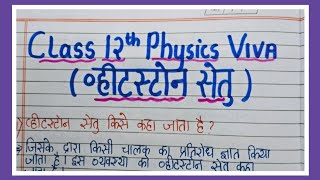 Class 12th Physics VIVA
(व्हीटस्टोन सेतु)
व्हीटस्टोन सेतु किसे कहा जाता है ?
जिसके द्वारा किसी चालक का प्रतिरोध ज्ञात किया
जाता है। इस व्यवस्था को व्हीटस्टोन सेतु कहा